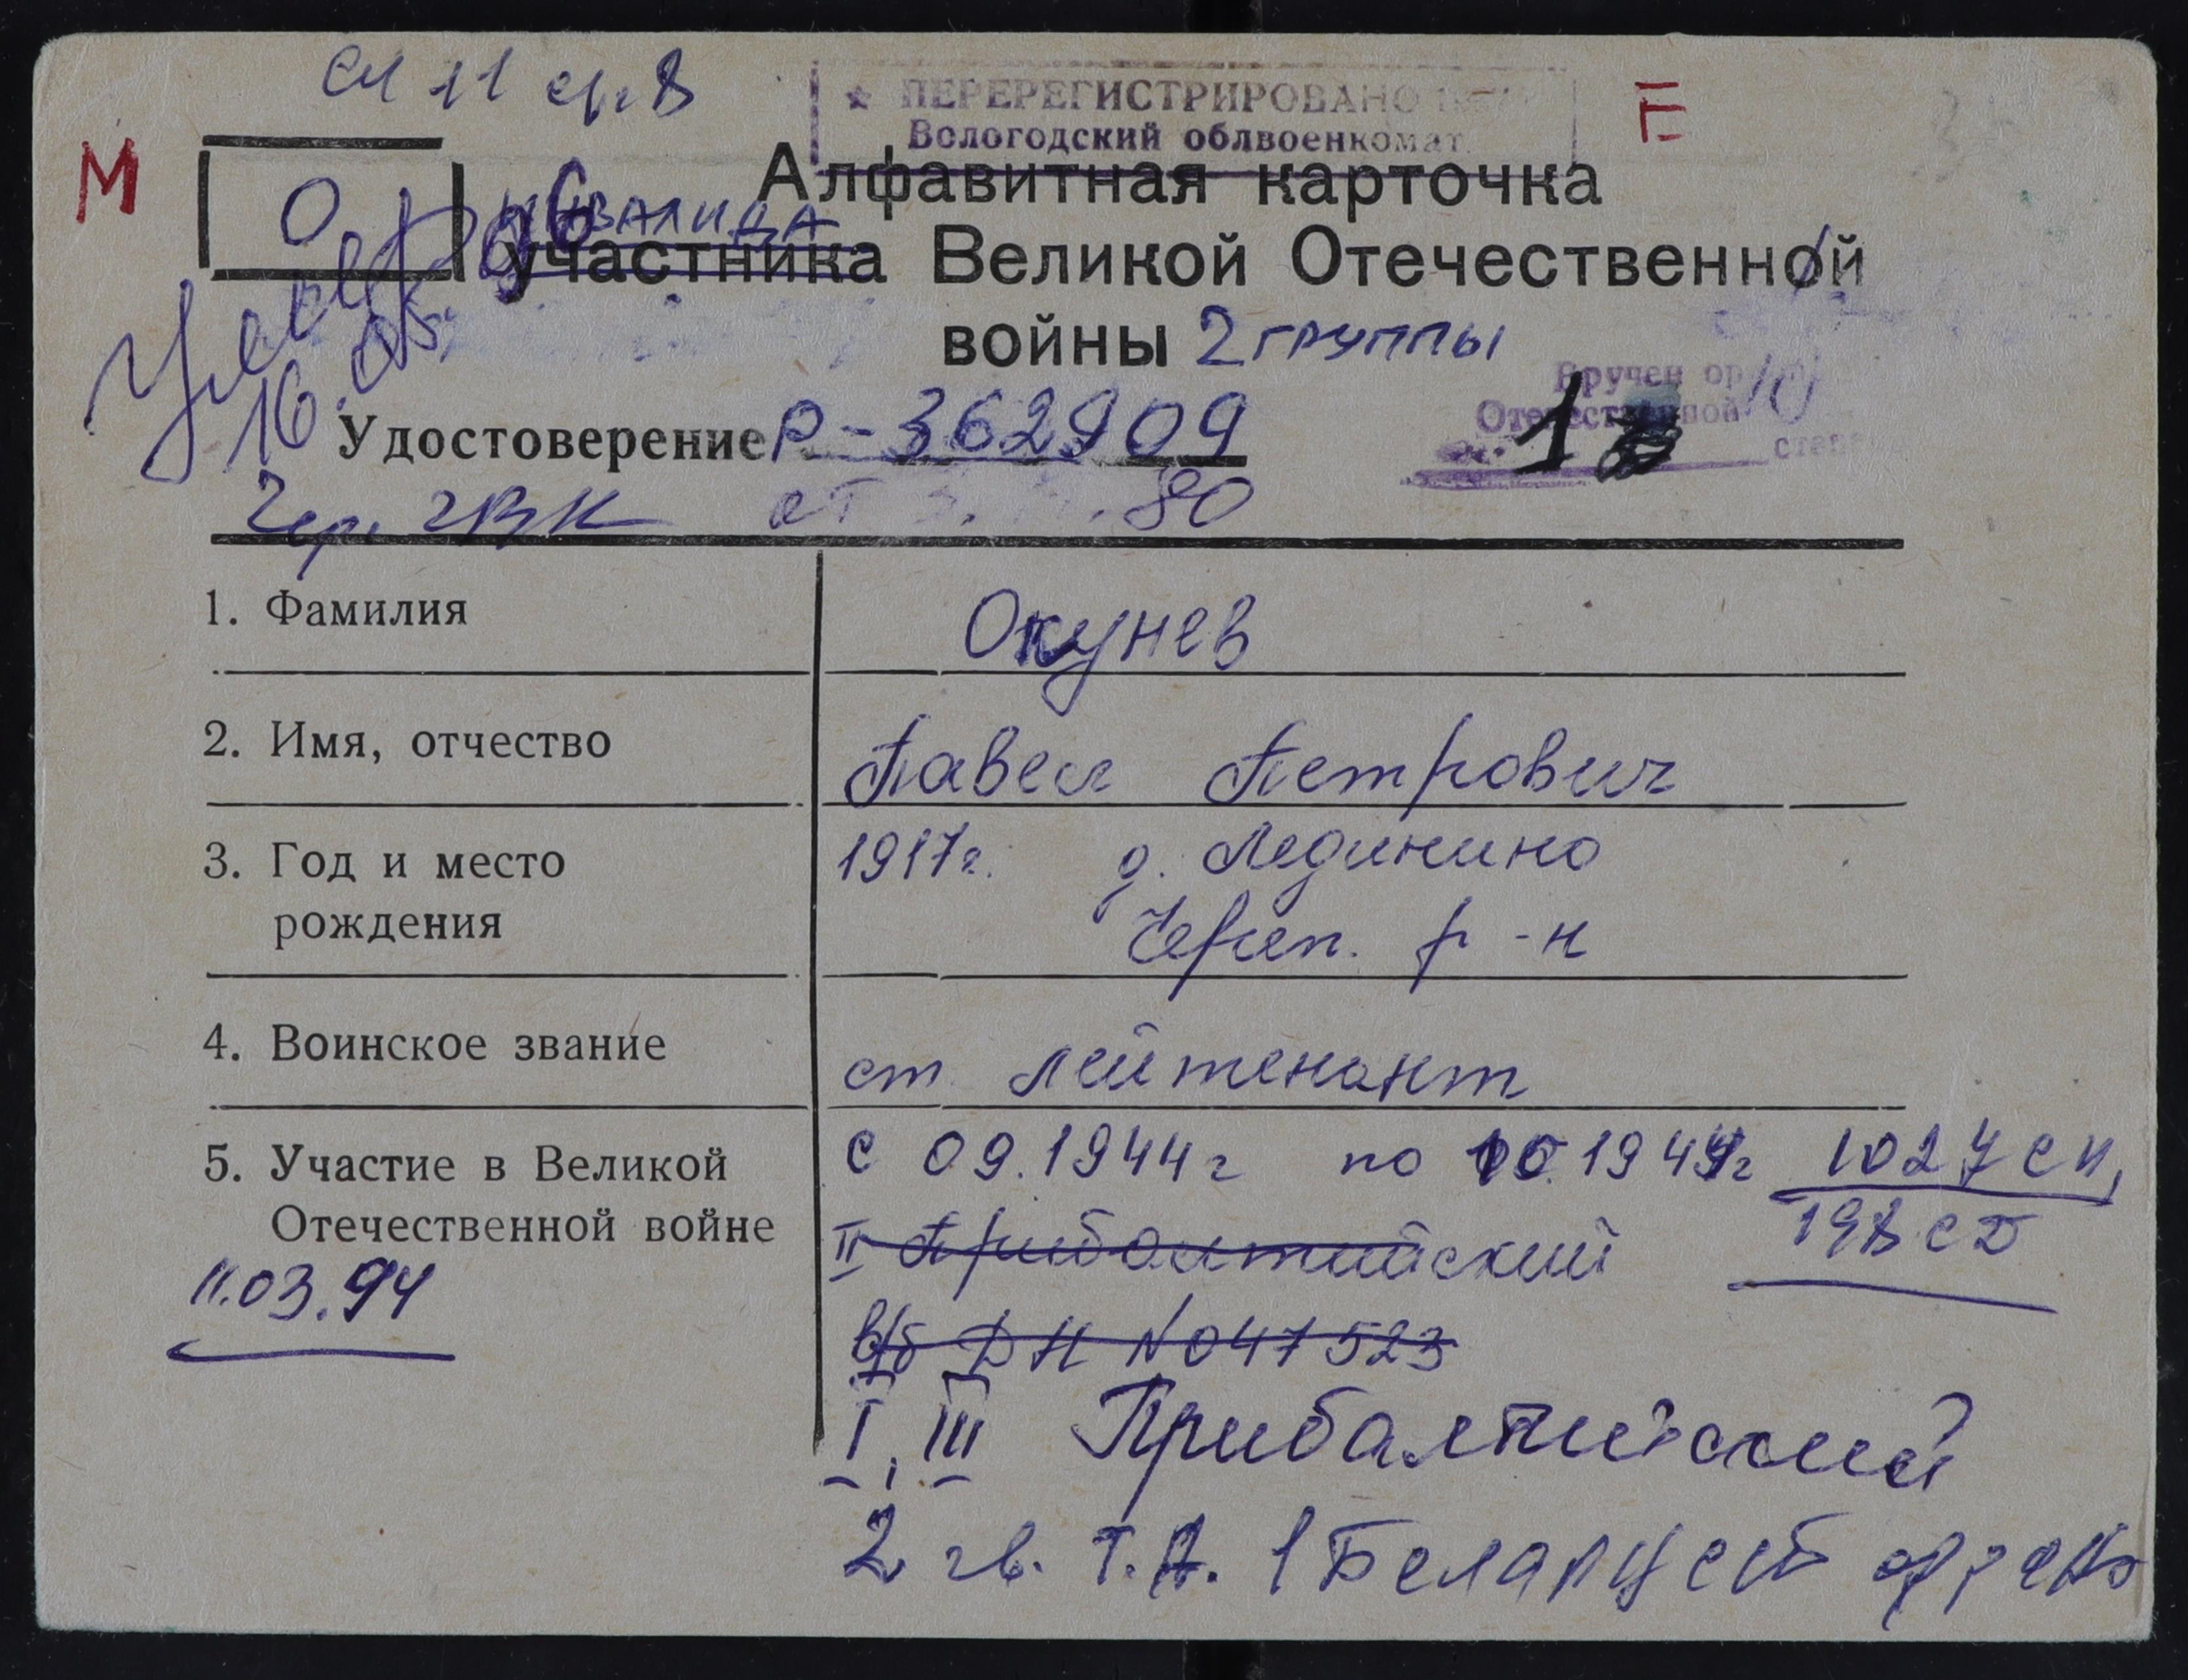 см 11 ср. 8
★ ПЕРЕРЕГИСТРИРОВАНО
Вологодский облвоенкомат
Е
М
О
Алфавитная карточка
ИНВАЛИДА
участника Великой Отечественной
войны 2 группы
16.05.96
Вручен
Отечественной
1
Удостоверение Р-362909
Чер. ГВК от 80
1. Фамилия
Окунев
2. Имя, отчество
Павел Петрович
3. Год и место
рождения
1917г. д. Мединино
Череп. р-н
4. Воинское звание
ст. лейтенант
5. Участие в Великой
Отечественной войне
11.03.94
с 09.1944г по 10.1944г 1027 сп,
198 СД
II Прибалтийский
в/б ДН №047523
I, III Прибалтийский
2 гв. Т.А. 1 Беларусск